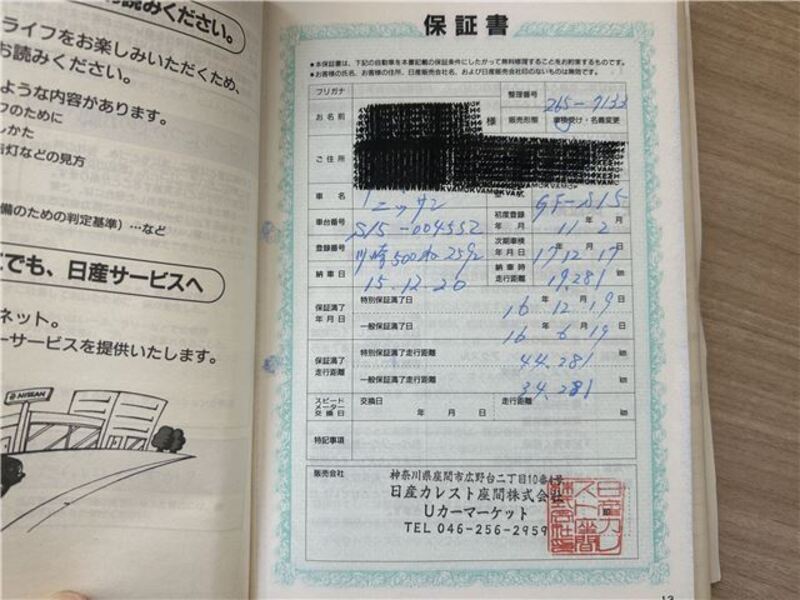 お読みください。
ライフをお楽しみいただくため、
お読みください。
ような内容があります。
フのために
しかた
告灯などの見方
備のための判定基準）…など
こでも、日産サービスへ
ネット。
ーサービスを提供いたします。
NISSAN
保証書
●本保証書は、下記の自動車を本書記載の保証条件にしたがって無料修理することをお約束するものです。
●お客様の氏名、お客様の住所、日産販売会社名、および日産販売会社印のないものは無効です。
フリガナ
整理番号 265-7133
お名前 様
販売形態 車検受け・名義変更
ご住所
車名 ニッサン
型式 GF-S15
車台番号 S15-004552
初度登録年月 11年2月
登録番号 川崎500 ね 2592
次期車検年月日 17年12月17日
納車日 15.12.20
納車時走行距離 19,281 km
保証満了年月日
特別保証満了日 16年12月19日
一般保証満了日 16年6月19日
保証満了走行距離
特別保証満了走行距離 44,281 km
一般保証満了走行距離 34,281 km
スピードメーター交換日 交換日 年 月 日 走行距離 km
特記事項
販売会社
神奈川県座間市広野台二丁目10番4号
日産カレスト座間株式会社
Uカーマーケット
TEL 046-256-2959
日産カレスト座間株式会社印
13